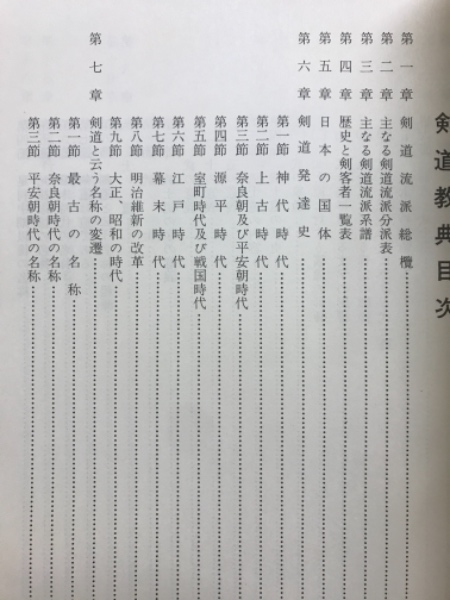 剣道教典目次
第一章 剣道流派総欖
第二章 主なる剣道流派分派表
第三章 主なる剣道流派系譜
第四章 歴史と剣客者一覧表
第五章 日本の国体
第六章 剣道発達史
第一節 神代時代
第二節 上古時代
第三節 奈良朝及び平安朝時代
第四節 源平時代
第五節 室町時代及び戦国時代
第六節 江戸時代
第七節 幕末時代
第八節 明治維新の改革
第九節 大正、昭和の時代
第七章 剣道と云う名称の変遷
第一節 最古の名称
第二節 奈良朝時代の名称
第三節 平安朝時代の名称